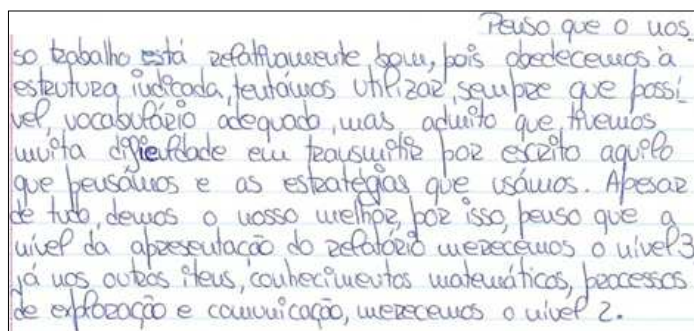 Penso que o nos-
so trabalho está relativamente bom, pois obedecemos à
estrutura indicada, tentámos utilizar, sempre que possí-
vel, vocabulário adequado, mas admito que tivemos
muita dificuldade em transmitir por escrito aquilo
que pensámos e as estratégias que usámos. Apesar
de tudo, demos o nosso melhor, por isso, penso que a
nível da apresentação do relatório merecemos o nível 3
já nos outros itens, conhecimentos matemáticos, processos
de exploração e comunicação, merecemos o nível 2.